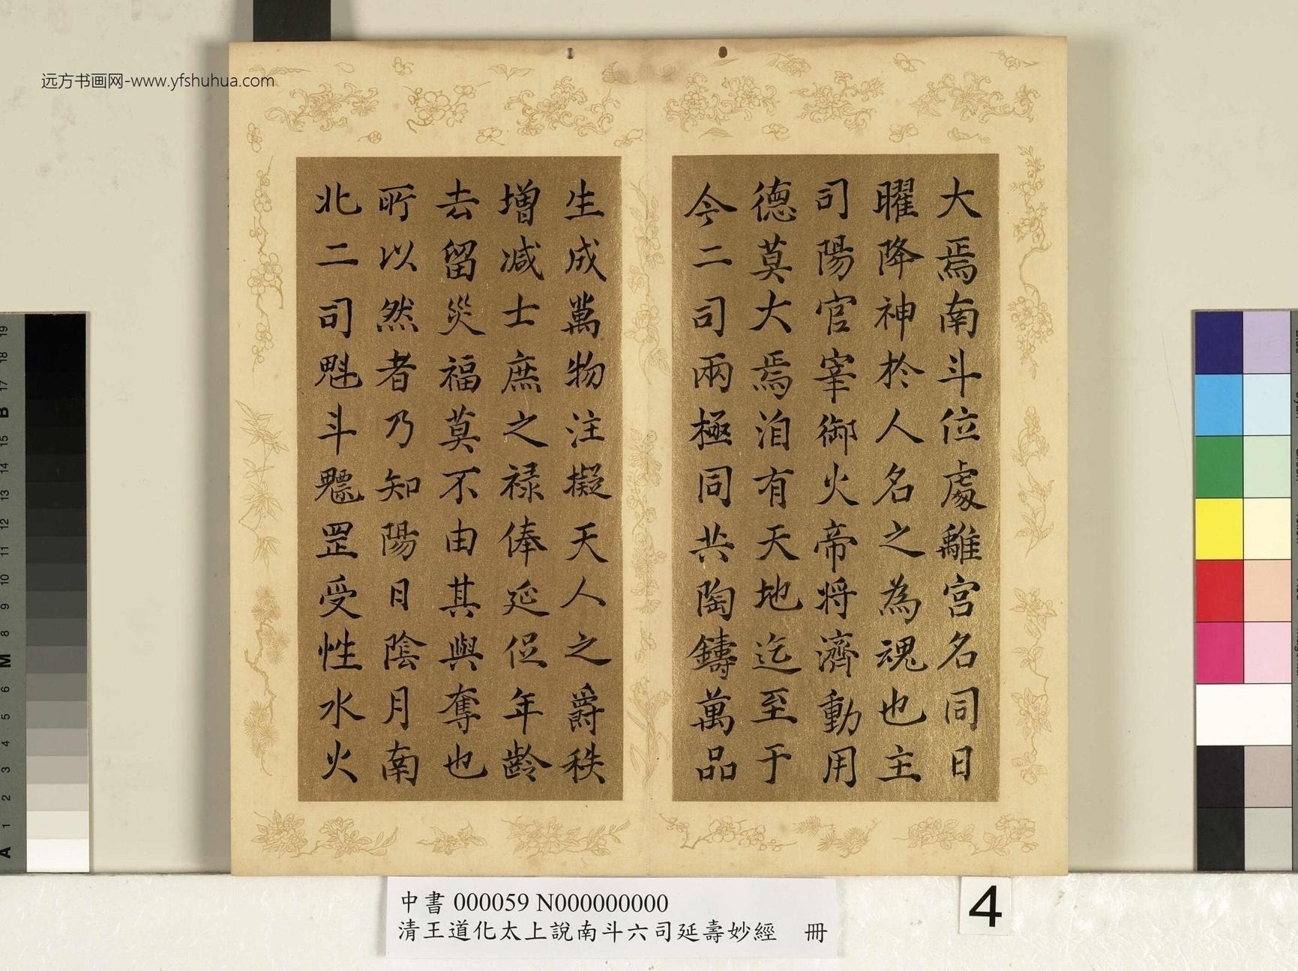 远方书画网-www.yfshuhua.com
大焉南斗位處離宮名同日
曜降神於人名之為魂也主
司陽官宰御火帝將濟動用
德莫大焉洎有天地迄至于
今二司兩極同共陶鑄萬品
生成萬物注擬天人之爵秩
增减士庶之禄俸延促年齡
去留災福莫不由其與奪也
所以然者乃知陽日陰月南
北二司魁斗魒罡受性水火
中書 000059 N000000000
清王道化太上說南斗六司延壽妙經 冊
4
19
18
17
B
16
15
14
13
12
11
10
9
8
M
6
5
4
3
2
1
A